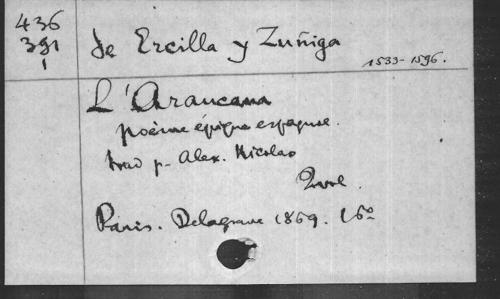 436
391
1
de Ercilla y Zuñiga
1533-1596.
L'Araucana
poème épique espagnol.
trad p. Alex. Nicolas
2 vol.
Paris. Delagrave 1869. 16º